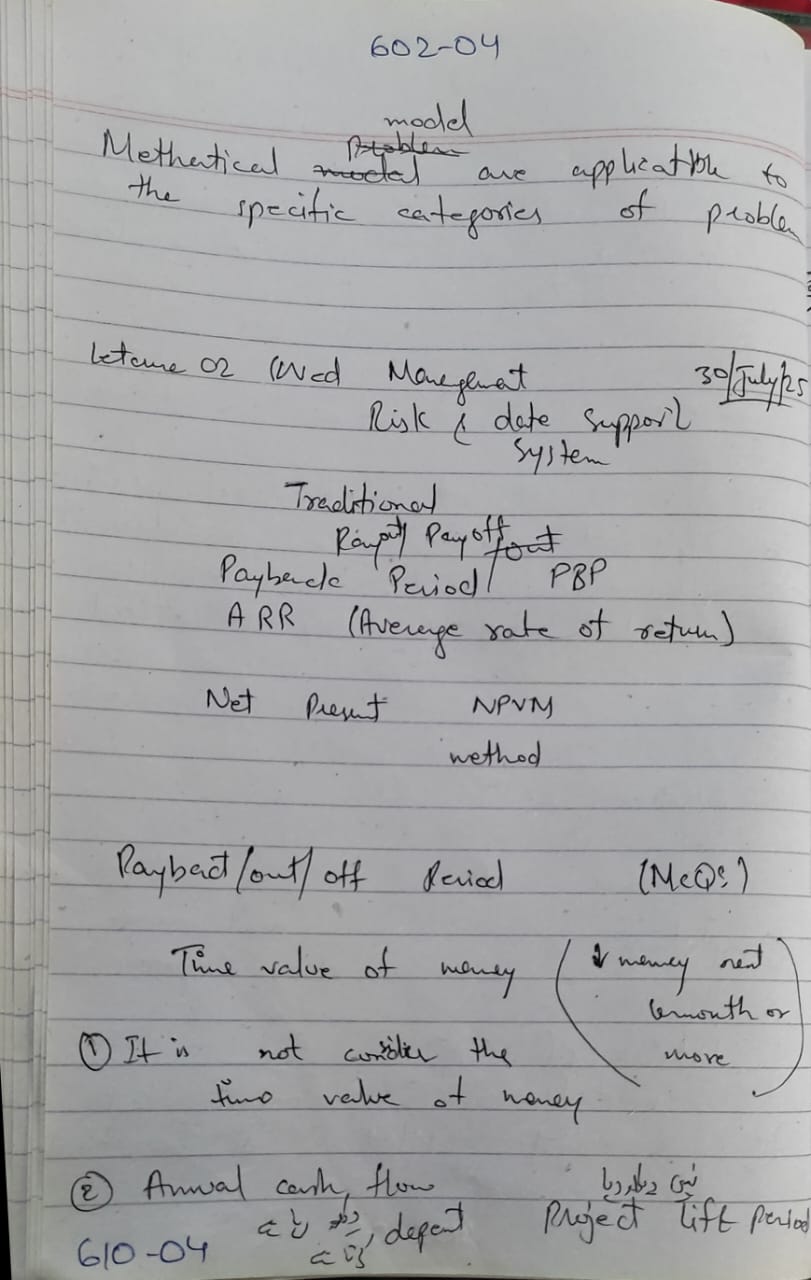 602-04
model
Methetical Problem model are applicatble to
the specific categories of problem
Leture 02 (Wed Management 30/July/25
Risk & date Support
System
Traditional
Payoff out
Payback Period/ PBP
ARR (Average rate of return)
Net Present NPVM
method
Payback/out/off Period (McQs)
Time value of money (↓ money next
6month or
① It is not consider the more)
time value of money
② Annual cash flow نہیں دیکھ رہا
depent Project lift period
610-04